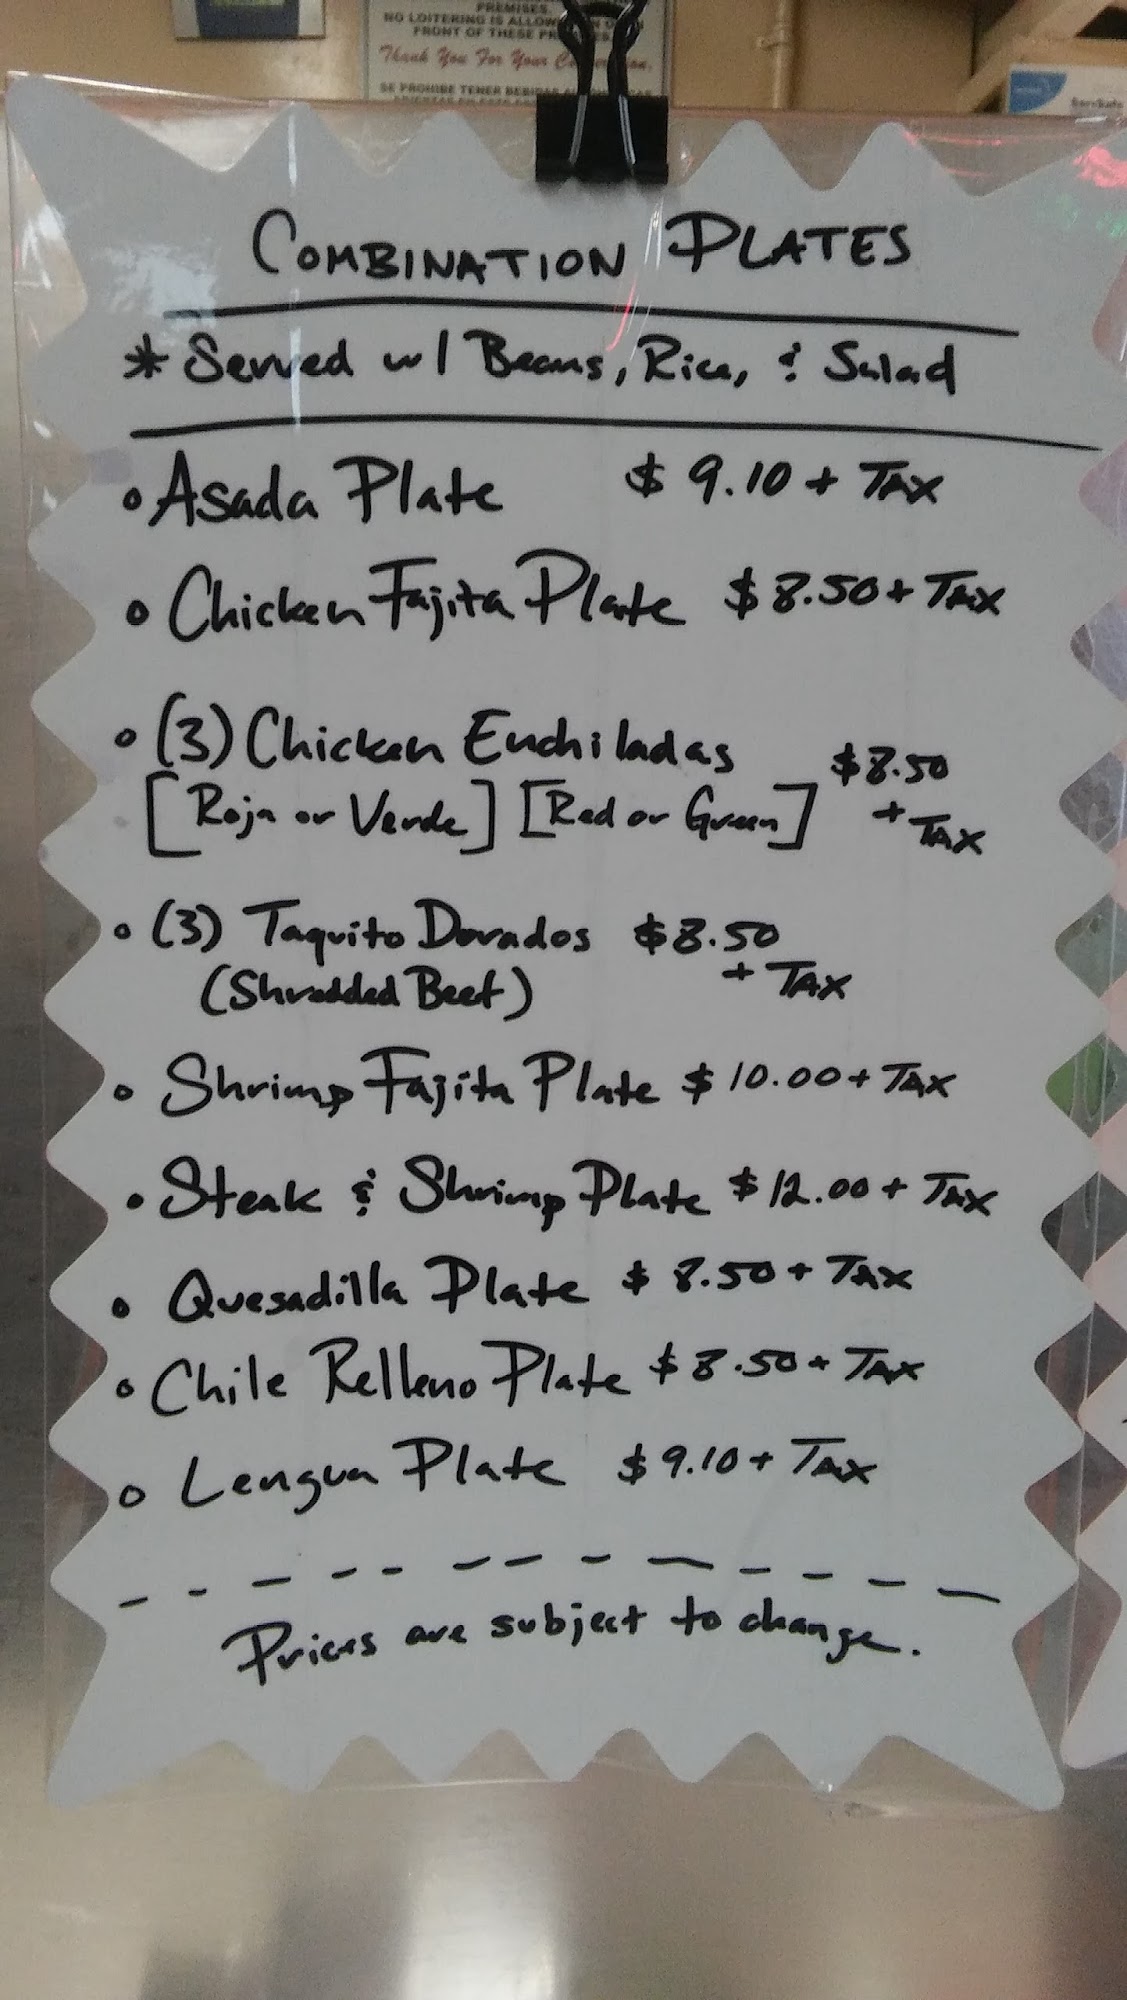 PREMISES.
NO LOITERING IS
FRONT OF THESE
Thank You For Your
SE PROHIBE TENER BEBIDAS
COMBINATION PLATES
* Served w/ Beans, Rice, & Salad
• Asada Plate $9.10 + TAX
• Chicken Fajita Plate $8.50 + TAX
• (3) Chicken Enchiladas $8.50
[Roja or Verde] [Red or Green] + TAX
• (3) Taquito Dorados $8.50
(Shredded Beef) + TAX
• Shrimp Fajita Plate $10.00 + TAX
• Steak & Shrimp Plate $12.00 + TAX
• Quesadilla Plate $8.50 + TAX
• Chile Relleno Plate $8.50 + TAX
• Lengua Plate $9.10 + TAX
Prices are subject to change.